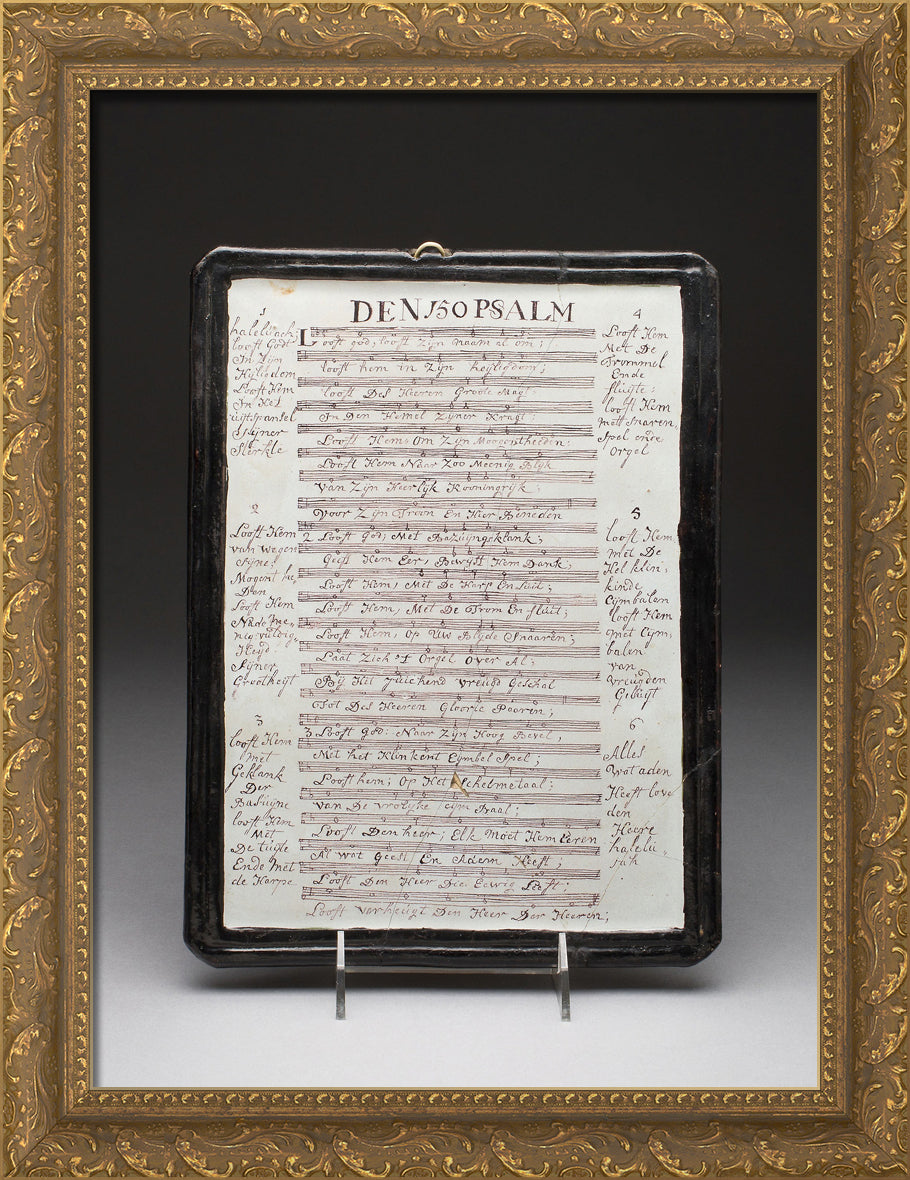 DEN 150 PSALM
1
halelujach
looft Godt
In Zijn
Hijliedom
Looft Hem
In Het
uijtspansel
Sijner
Sterkte
2
Looft Hem
van wegen
sijne
Mogent he,
Den
Looft Hem
Na de me,
nig vuldig,
Heijd
Sijner
Grootheijt
3
looft Hem
met
Geklank
Der
Basuijne
looft Hem
Met
De luijte
Ende Met
de Harpe
Looft god, looft Zijn naam al om;
looft hem in Zijn heyligdom;
looft Des Heeren Groote Magt
In Den Hemel Zijner Kragt;
Looft Hem, Om Zijn Moogentheeden:
Looft Hem Naar Zoo Meenig Blijk
van Zijn Heerlijk Kooningrijk
Voor Zijn Troon En Hier Beneden
2 Looft god, Met Bazuijngeklank;
Geeft Hem Eer, Bewijst Hem Dank;
Looft Hem, Met De Harp En luit;
Looft Hem, Met De Trom En fluit;
Looft Hem, Op Uw Blijde Snaaren;
Laat Zich 't Orgel Over Al;
Bij Het Juichend vreugd Geschal
Tot Des Heeren Gloorie Paaren;
3 Looft god: Naar Zijn Hoog Bevel,
Met het Klinkent Cymbel Spel;
Looft hem; Op Het Schelmetaal;
van De vrolyke Cijm Baal;
Looft Den heer; Elk Moet Hem Eeren
Al wat Geest En Adem Heeft;
Looft Den Heer Die Eewig Leeft;
Looft verheugt Den Heer Der Heeren;
4
Looft Hem
Met De
Trommel
Ende
fluijte:
looft Hem
mett snaren,
spel ende
Orgel
5
looft Hem
met De
Hel klin,
kinde
Cijmbalen
looft Hem
met Cijm,
balen
van
Vreugden
Geluijt
6
Alles
Wat aden
Heeft love
den
Heere
halelu
jah